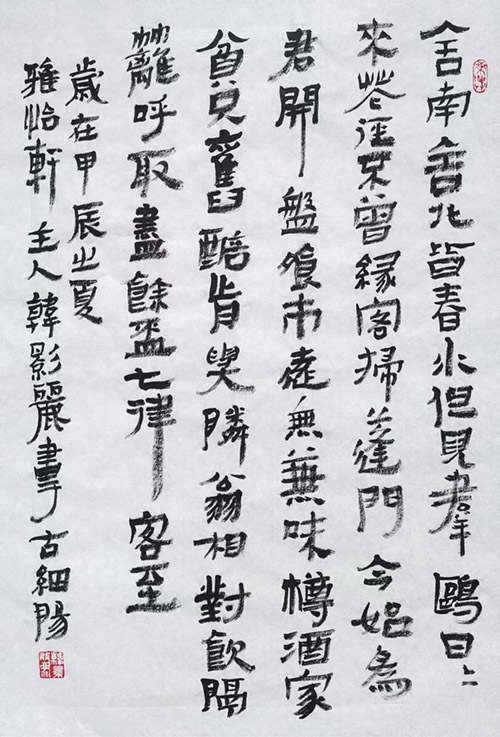 舍南舍北皆春水但見羣鷗日〻
來花徑不曾緣客掃蓬門今始為
君開盤飧市遠無兼味樽酒家
貧只舊醅肯與隣翁相對飲隔
籬呼取盡餘盃七律客至
歲在甲辰之夏
雅怡軒主人韓影麗書古細陽